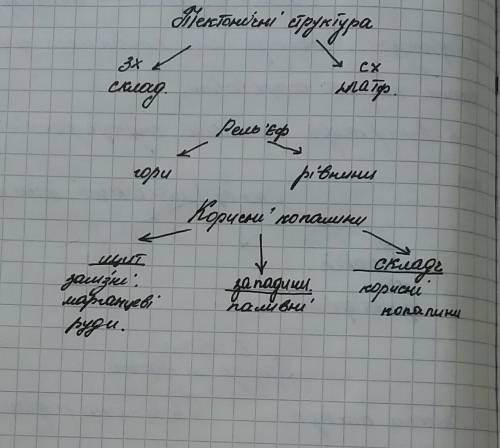 Тектонічні структура
Зх
склад.
Сх
платф.
Рельєф
гори
рівнини
Корисні копалини
щит
залізні.
марганцеві
руди.
западини
паливні
складч
корисні
копалини